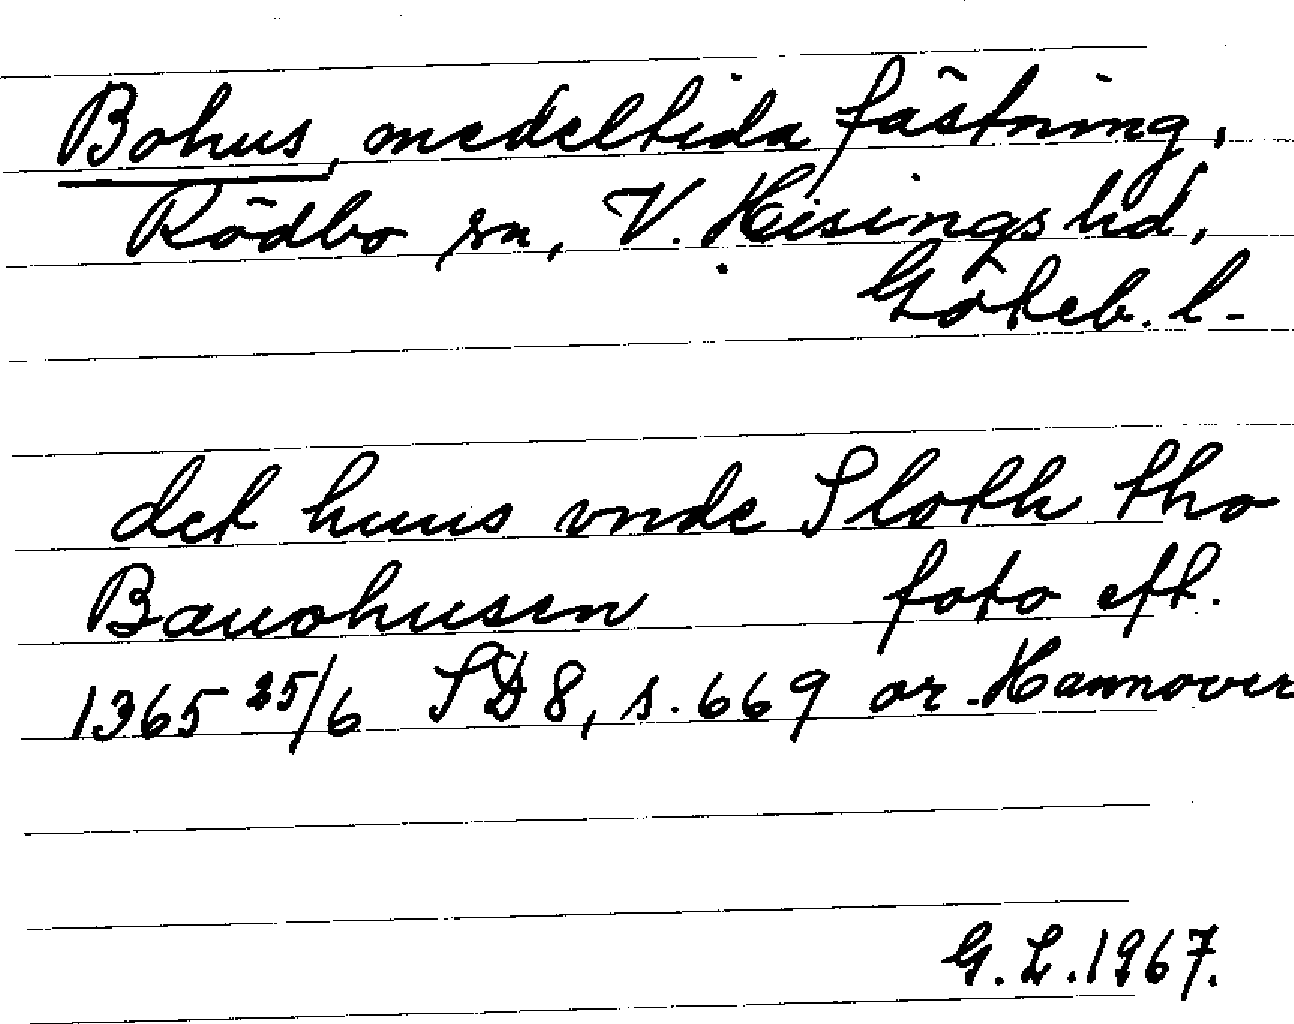 Bohus, medeltida fästning,
Rödbo sn, V. Hisings hd,
Göteb. l.
det huus vnde Sloth tho
Bauohusen foto eft.
1365 25/6 SD 8, s. 669 or. Hannover
G. L. 1967.